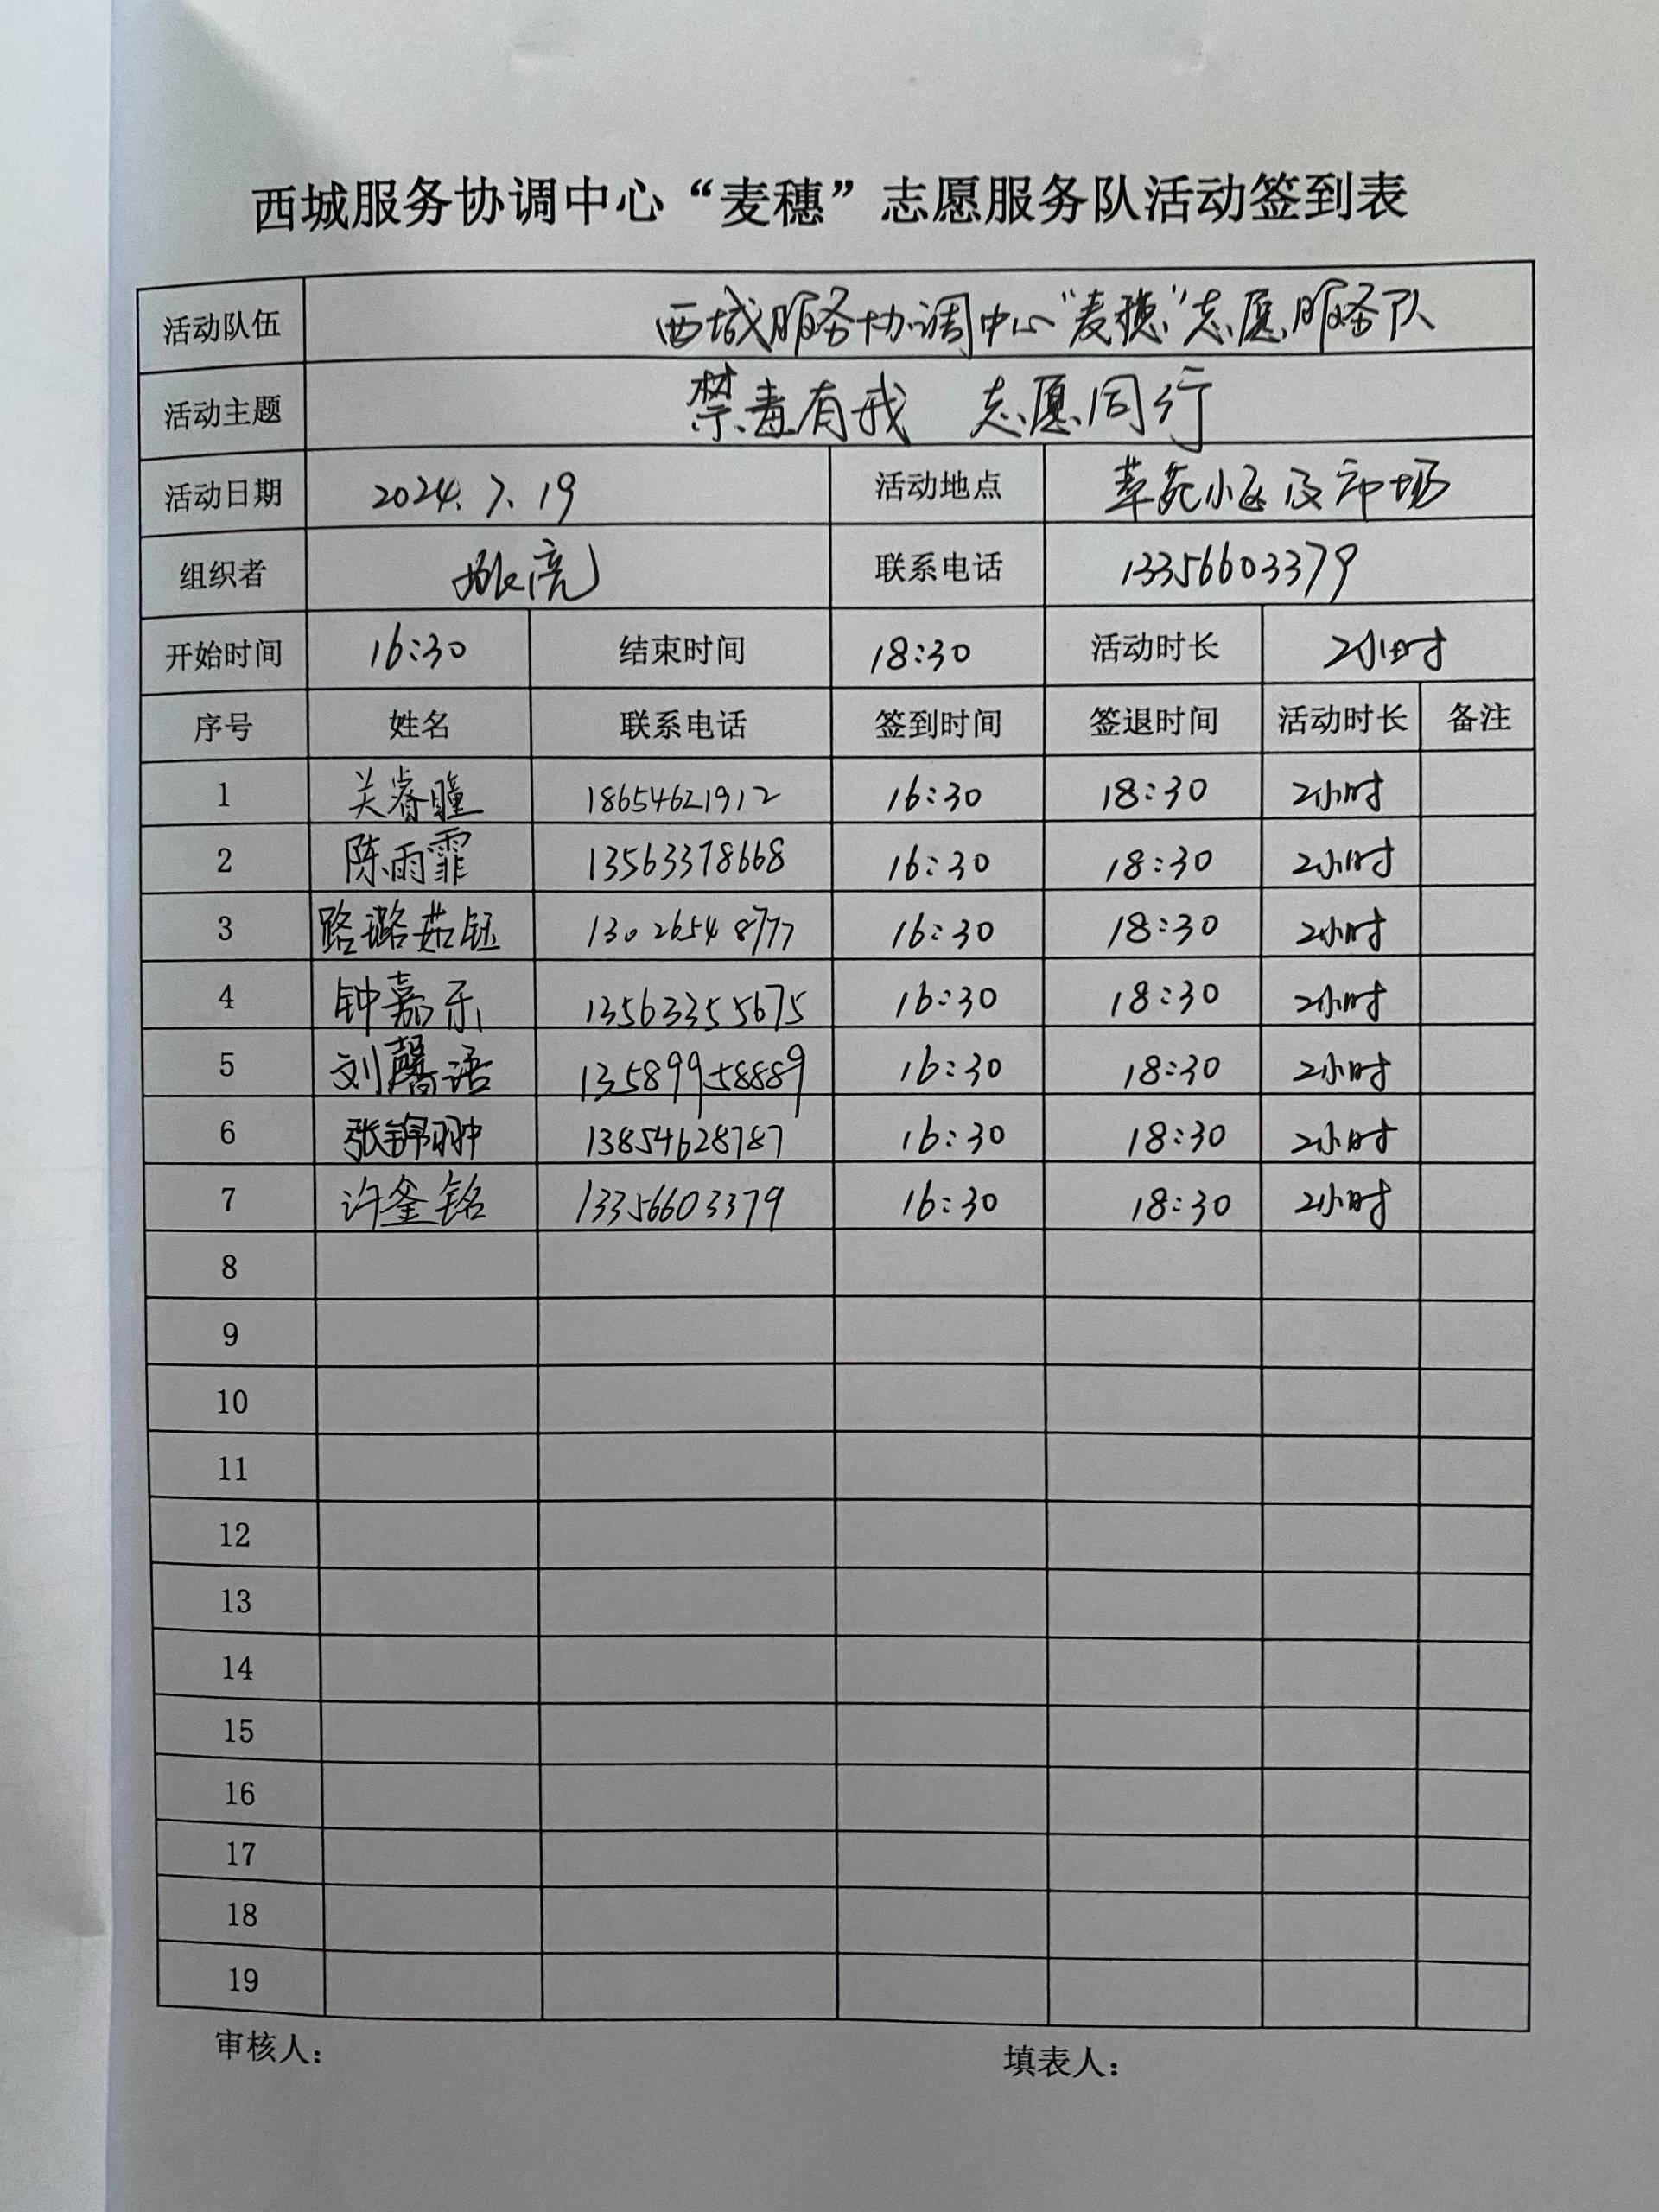 西城服务协调中心“麦穗”志愿服务队活动签到表
活动队伍 西城服务协调中心“麦穗”志愿服务队
活动主题 禁毒有我 志愿同行
活动日期 2024.7.19 活动地点 苑小区及市场
组织者 张亮 联系电话 13356603379
开始时间 16:30 结束时间 18:30 活动时长 2小时
序号 姓名 联系电话 签到时间 签退时间 活动时长 备注
1 关睿瞳 18654621912 16:30 18:30 2小时
2 陈雨霏 13563378668 16:30 18:30 2小时
3 路璐茹钰 13026548777 16:30 18:30 2小时
4 钟嘉乐 13563355675 16:30 18:30 2小时
5 刘馨语 13589958889 16:30 18:30 2小时
6 张锦翀 13854628787 16:30 18:30 2小时
7 许釜铭 13356603379 16:30 18:30 2小时
8
9
10
11
12
13
14
15
16
17
18
19
审核人： 填表人：